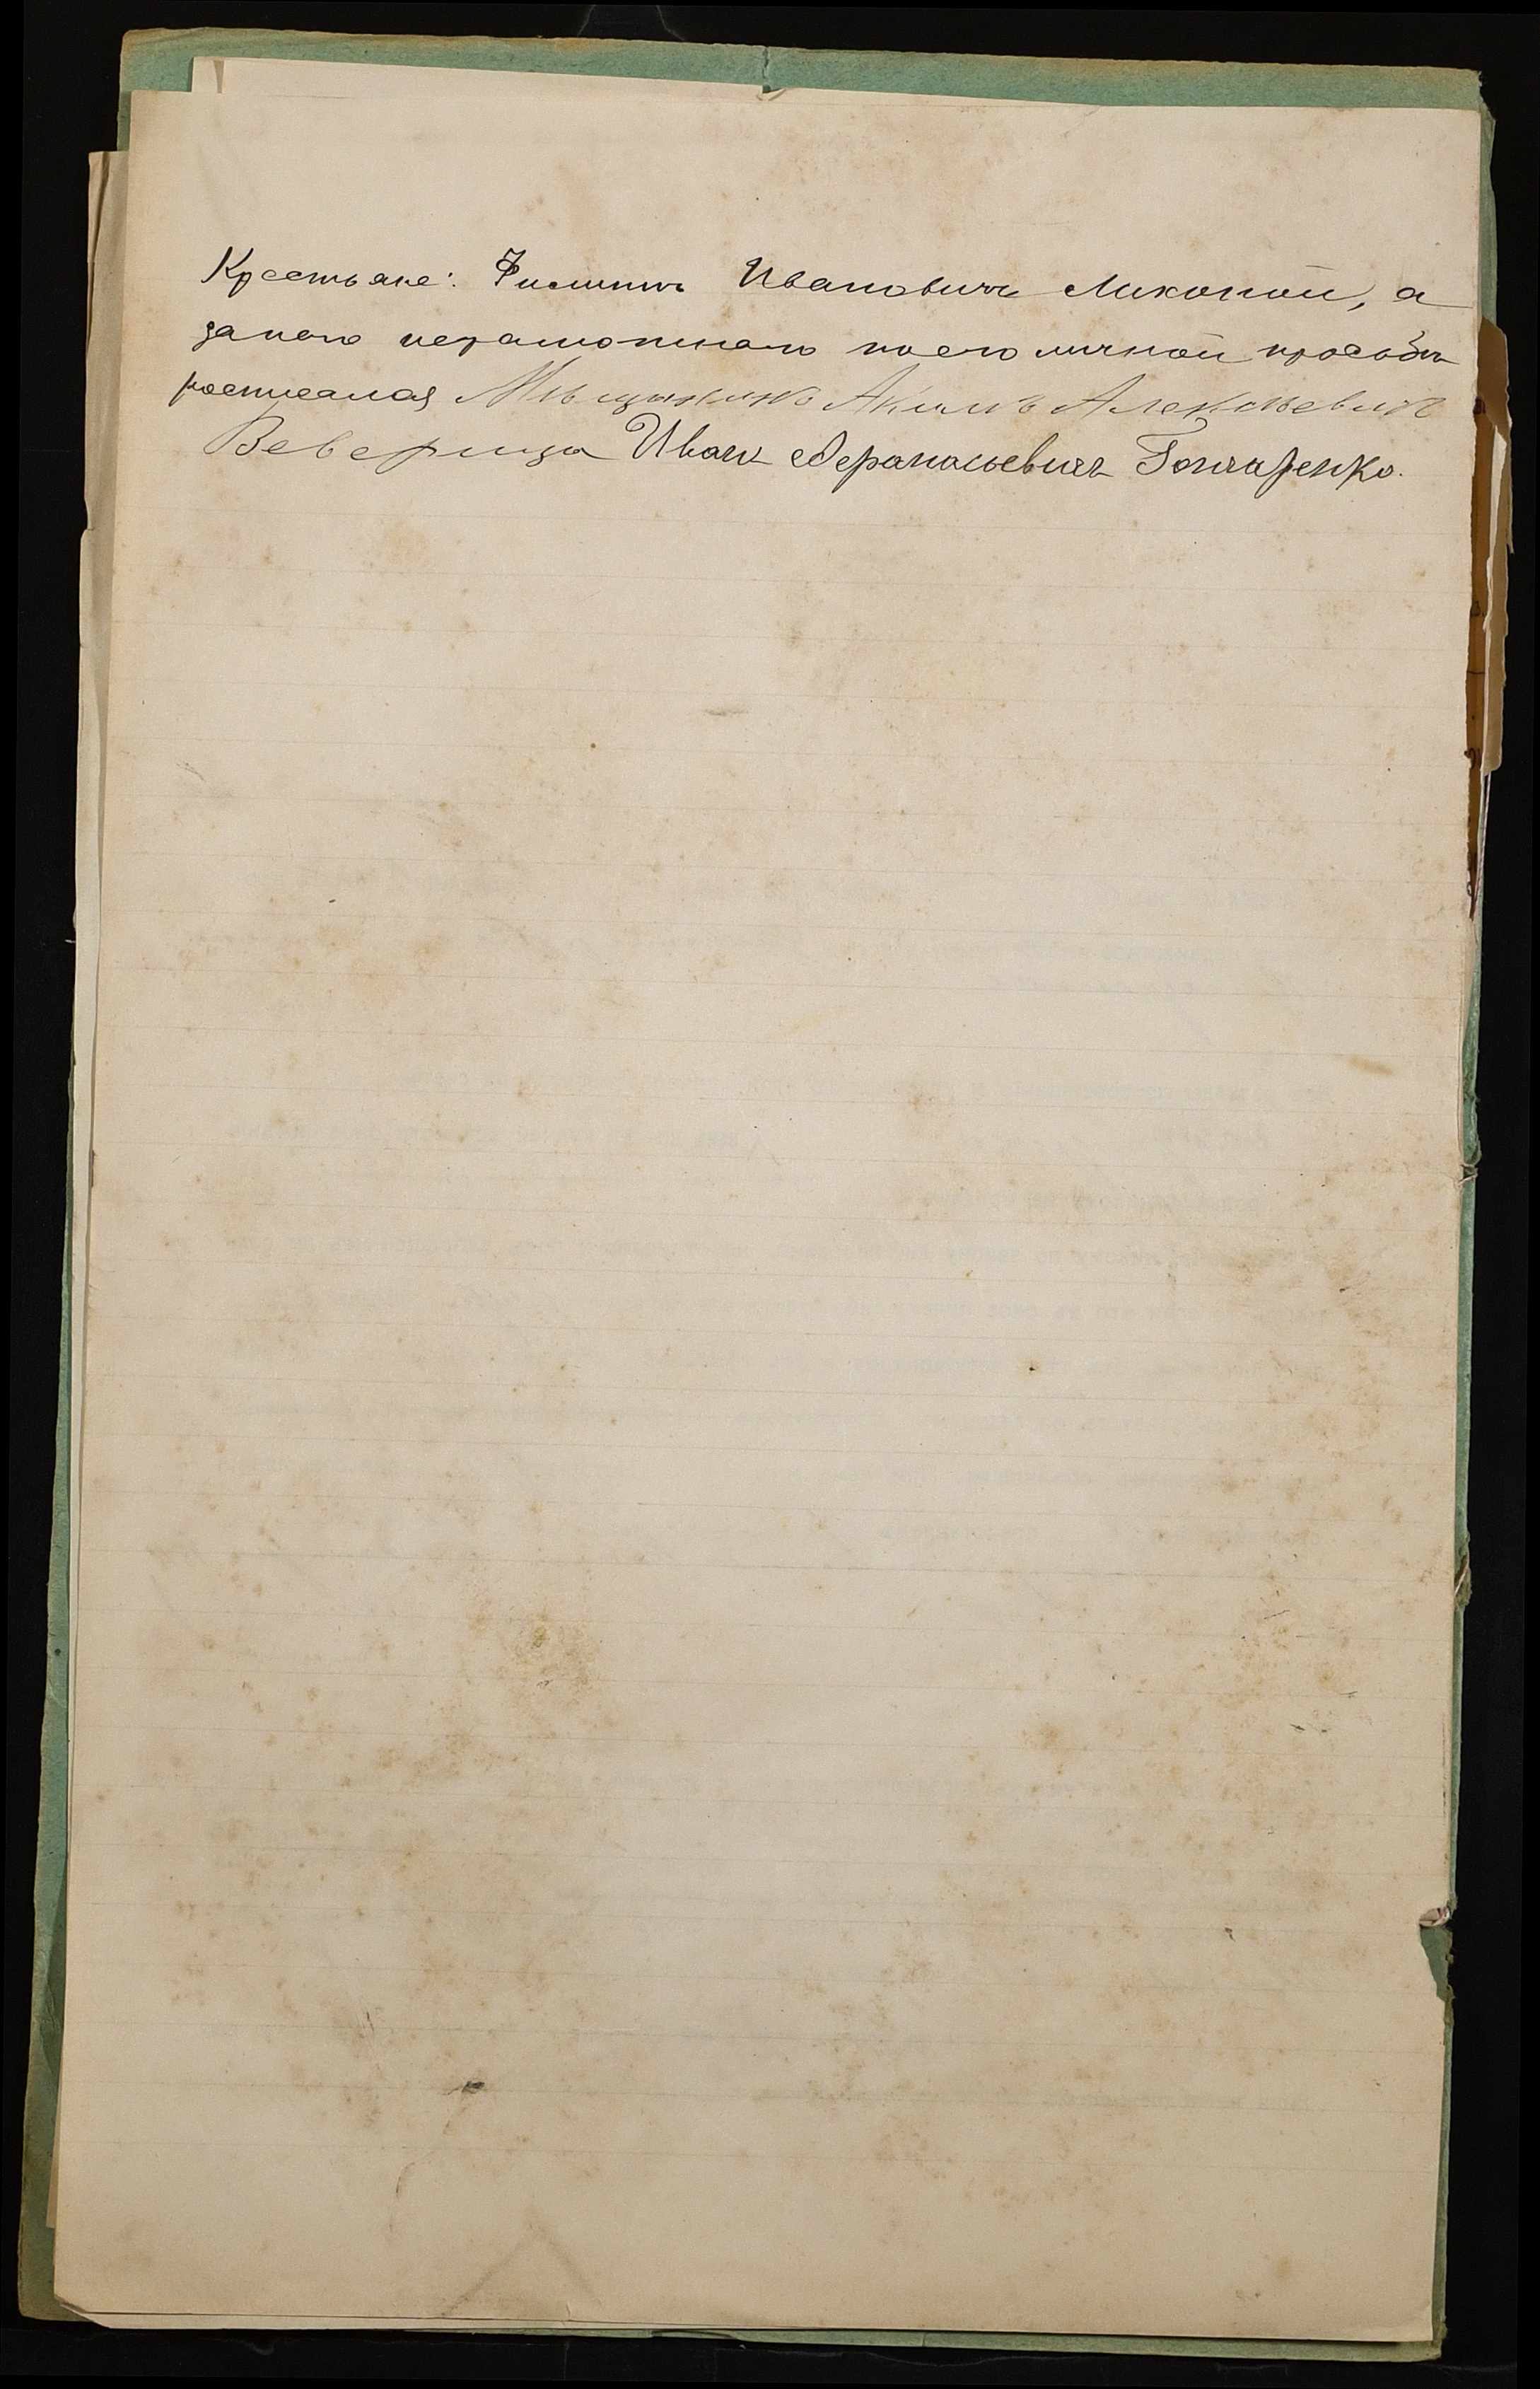 Крестьяне: Филиппъ Ивановичъ Ликопой, а
за него неграмотнаго по его личной просьбѣ
росписался Мѣщанинъ Акимъ Алексѣевичъ
Веверица Иванъ Афанасьевичъ Гончаренко.